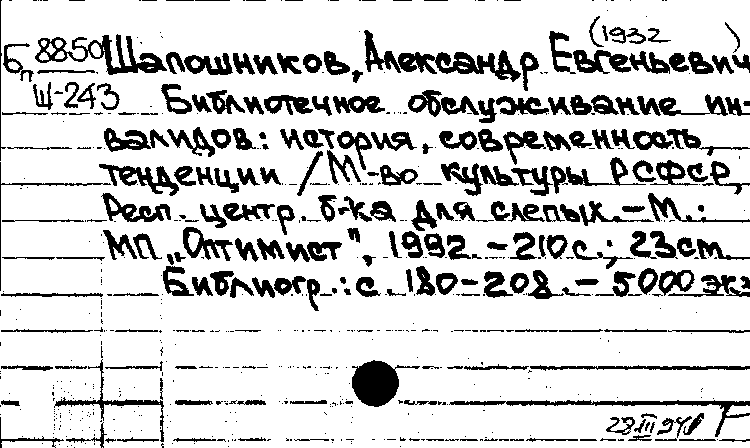 (1932 )
Бп 8850 Шапошников, Александр Евгеньевич
Ш-243 Библиотечное обслуживание ин-
валидов: история, современность,
тенденции / М-во культуры РСФСР,
Респ. центр. б-ка для слепых. – М.:
МП „Оптимист", 1992. – 210 с.; 23 см.
Библиогр.: с. 180-208. – 5000 экз